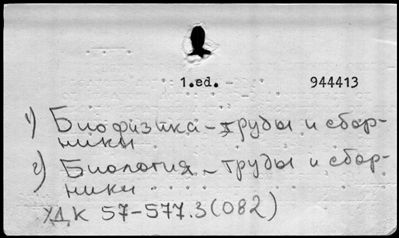 1.ed. 944413
1) Биофизика - труды и сбор-
ники
2) Биология - труды и сбор-
ники
УДК 57-577.3(082)